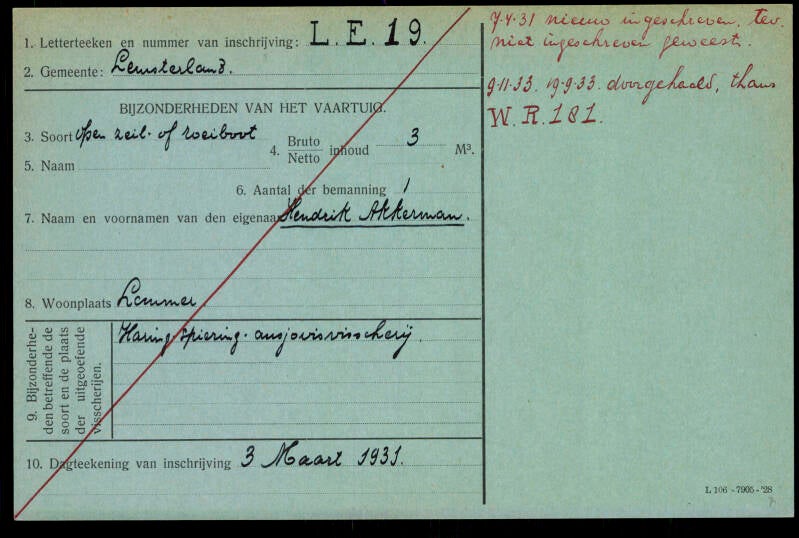 1. Letterteeken en nummer van inschrijving: L.E.19.
2. Gemeente: Lemsterland.
BIJZONDERHEDEN VAN HET VAARTUIG.
3. Soort open zeil- of roeiboot
4. Bruto Netto inhoud 3 M³.
5. Naam
6. Aantal der bemanning 1
7. Naam en voornamen van den eigenaar Hendrik Akkerman.
8. Woonplaats Lemmer.
9. Bijzonderhe-
den betreffende de
soort en de plaats
der uitgeoefende
visscherijen.
Haring- spiering- ansjovisvisscherij.
10. Dagteekening van inschrijving 3 Maart 1931.
7-4-31 nieuw ingeschreven, tev.
niet ingeschreven geweest.
9-11-33. 19-9-33. doorgehaald, thans
W.R.181.
L 106 - 7905 - '28